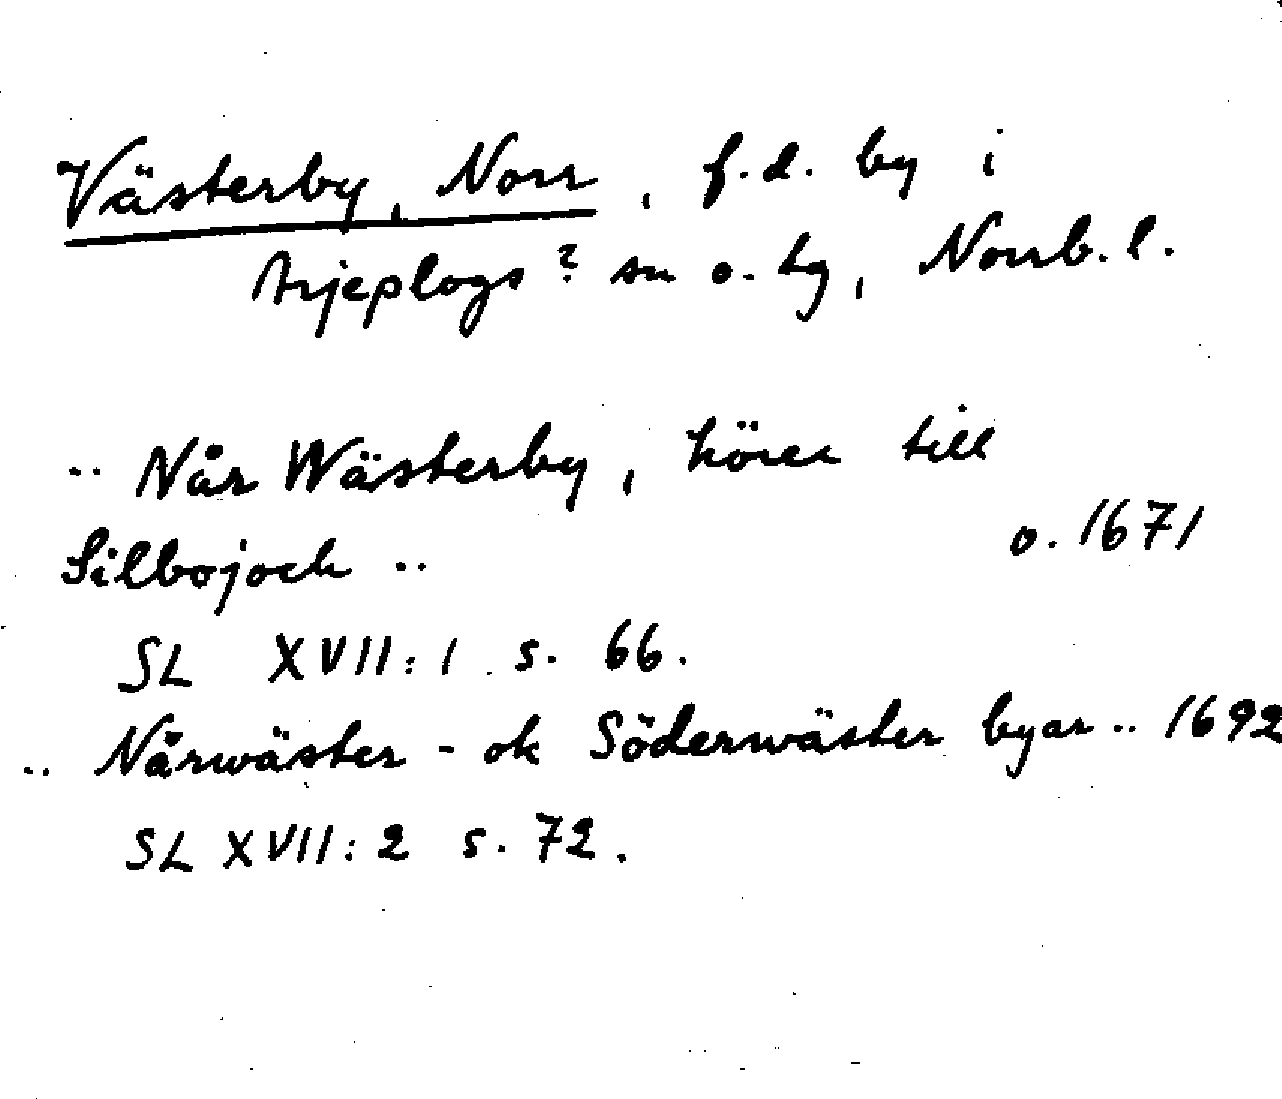 Västerby, Norr, f.d. by i
Arjeplogs? sn o. tg, Norrb. l.
.. Når Wästerby, hörer till
Silbojock .. o. 1671
SL XVII:1 s. 66.
.. Nårwäster - ok Söderwäster byar .. 1692
SL XVII:2 s. 72.